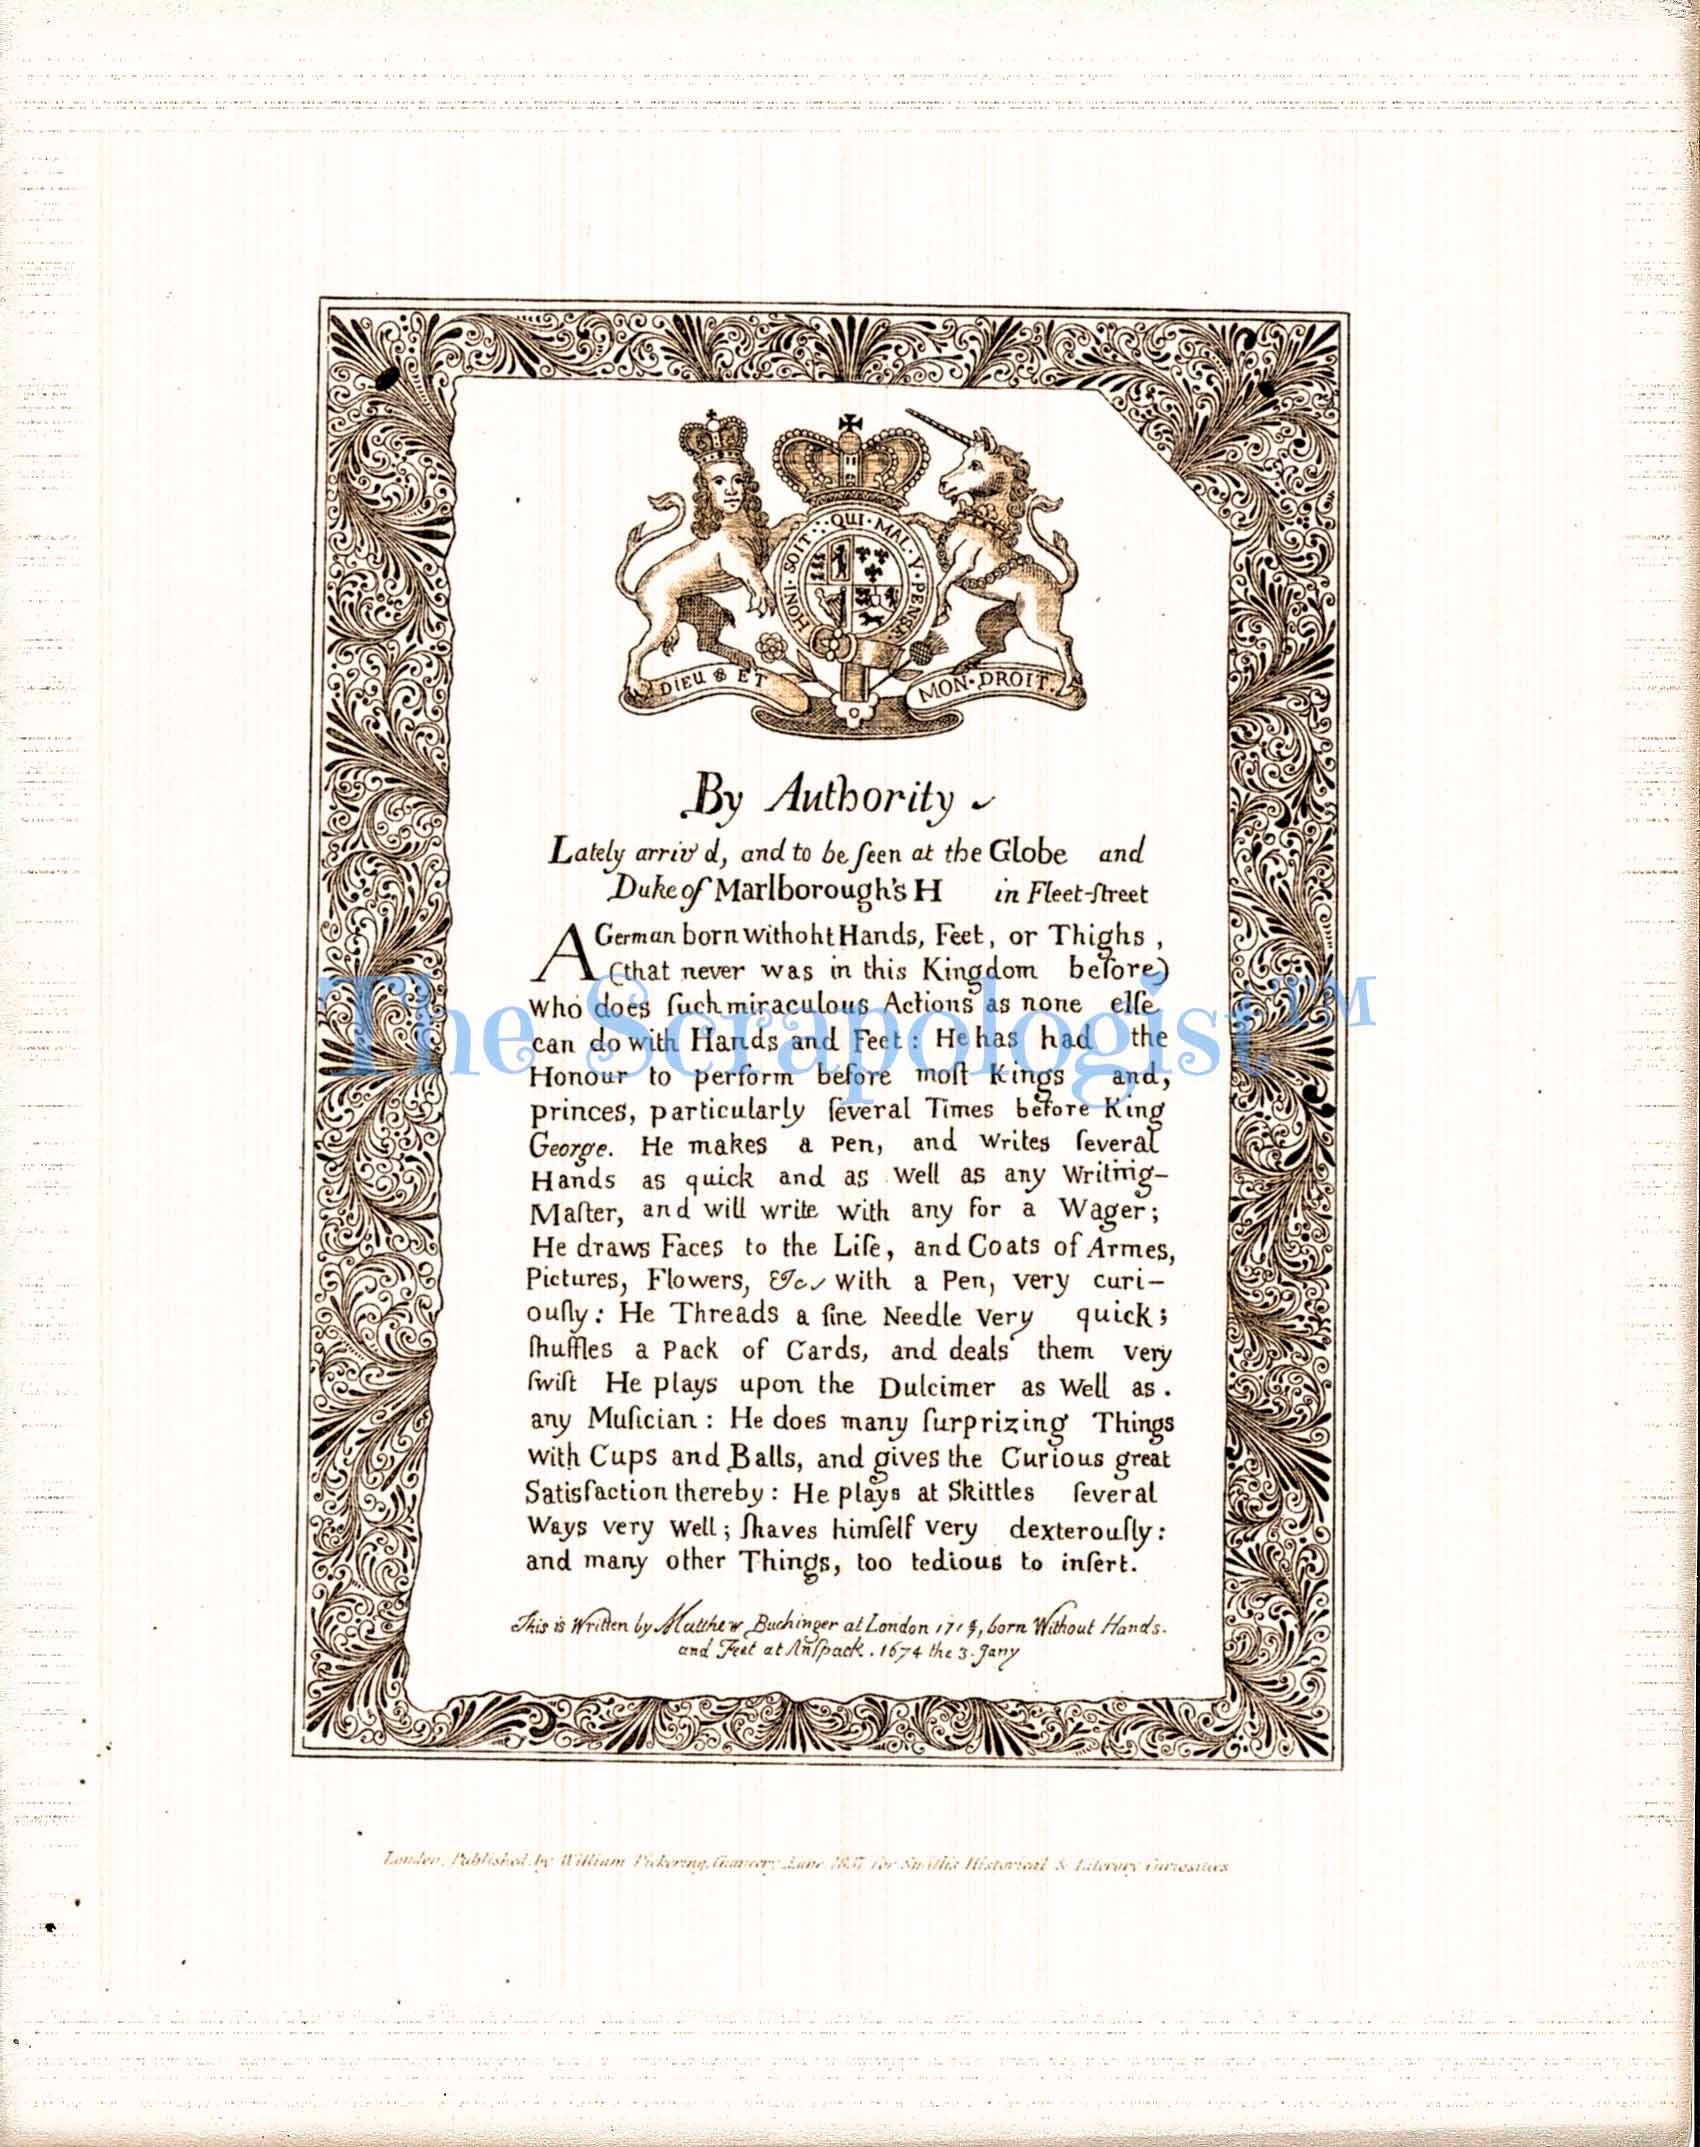 HONI · SOIT · QUI · MAL · Y · PENSE
DIEU & ET MON · DROIT.
By Authority
Lately arriv'd, and to be ſeen at the Globe and
Duke of Marlborough's H in Fleet-ſtreet
A German born withoht Hands, Feet, or Thighs,
(that never was in this Kingdom before)
who does ſuch miraculous Actions as none elſe
can do with Hands and Feet: He has had the
Honour to perform before moſt Kings and,
princes, particularly ſeveral Times before King
George. He makes a Pen, and writes ſeveral
Hands as quick and as well as any Writing-
Maſter, and will write with any for a Wager;
He draws Faces to the Life, and Coats of Armes,
Pictures, Flowers, &c, with a Pen, very curi-
ouſly: He Threads a fine Needle very quick;
ſhuffles a Pack of Cards, and deals them very
ſwift He plays upon the Dulcimer as Well as.
any Muſician: He does many ſurprizing Things
with Cups and Balls, and gives the Curious great
Satisfaction thereby: He plays at Skittles ſeveral
Ways very well; ſhaves himſelf very dexterouſly:
and many other Things, too tedious to inſert.
This is Written by Matthew Buchinger at London born Without Hands.
and Feet at Anſpack. 1674 the 3. Jany
London, Published by William Pickering, Chancery Lane 1837 for Smith's Historical & Literary Curiosities
The Scrapologist™